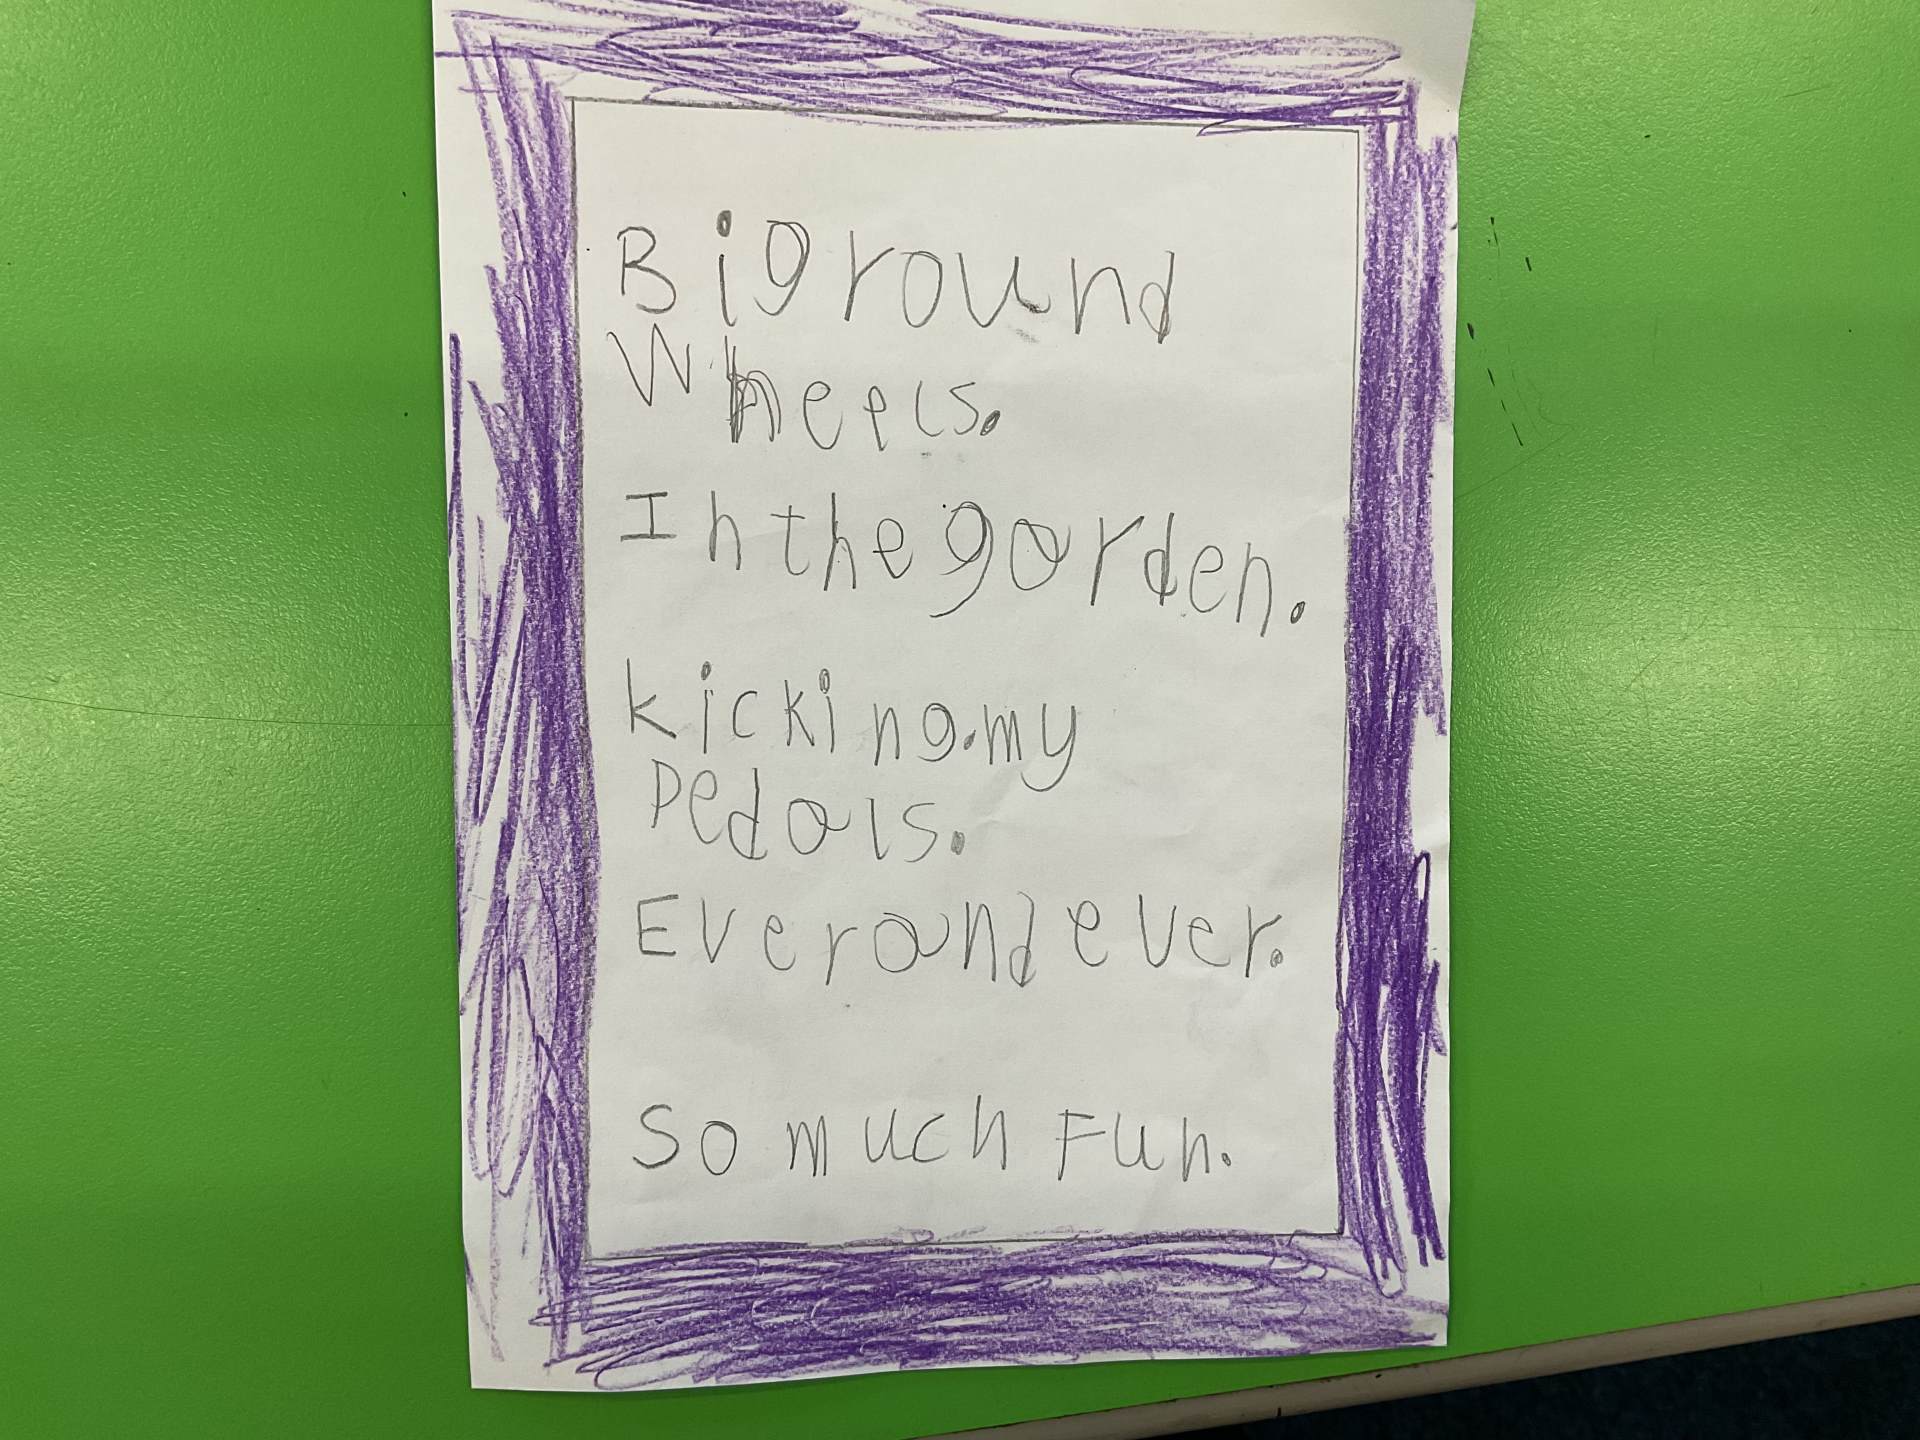 Big round
Wheels.
In the garden.
kicking.my
Pedals.
Ever and ever.
So much Fun.